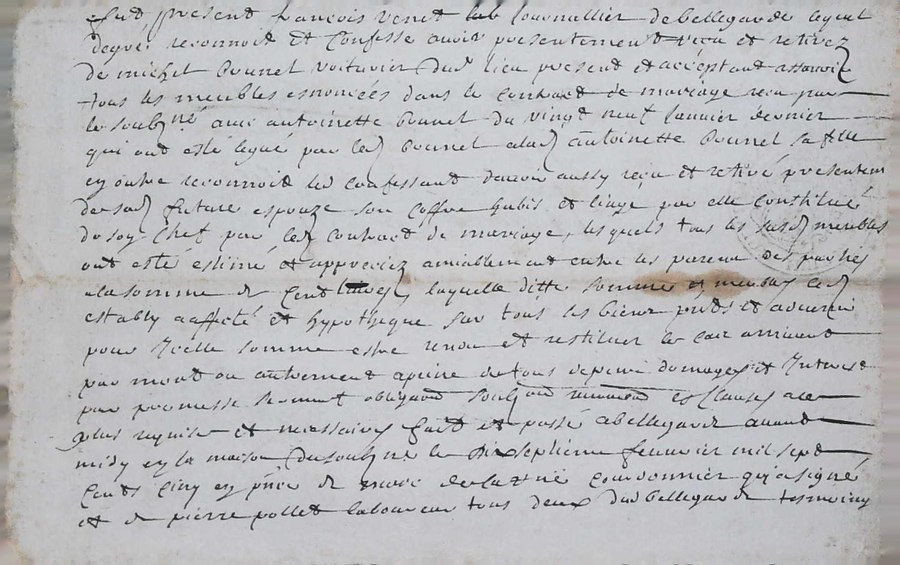 fut present françois venet lab journallier de bellegarde lequel
degré reconnoit et confesse avoir presentement reçu et retirez
de michel bonnel voiturier dud lieu present et acceptant assavoir
tous les meubles enoncées dans le contract de mariage reçu par
le soubzné avec antoinette bonnel du vingt neuf janvier dernier
qui ont esté legué par led bonnel alad antoinette bonnel sa fille
en outre reconnoit led confessant davoir aussy reçu et retiré presentem
de sad future espouze son coffre habis et linge par elle constitué
de son chef par led contract de mariage, lesquels tous les susd meubles
ont esté estimé et appreciez amiablement entre les parens des parties
ala somme de cent livres, laquelle ditte somme et meubles led
estably a affecté et hypotheque sur tous les biens pnts et advenir
pour icelle somme estre rendu et restituer le cas arrivant
par mort ou autrement a peine de tous depens domages et interest
par promesse serment obligaon soubzon renonon et clauses a ce
plus requises et necessaires fait et passé a bellegarde avant
midy en la maison du soubzné le septieme fevrier mil sept
cents cinq en pnce de marc cordonnier qui a signé
et de pierre pollet laboureur tous deux dud bellegarde tesmoins